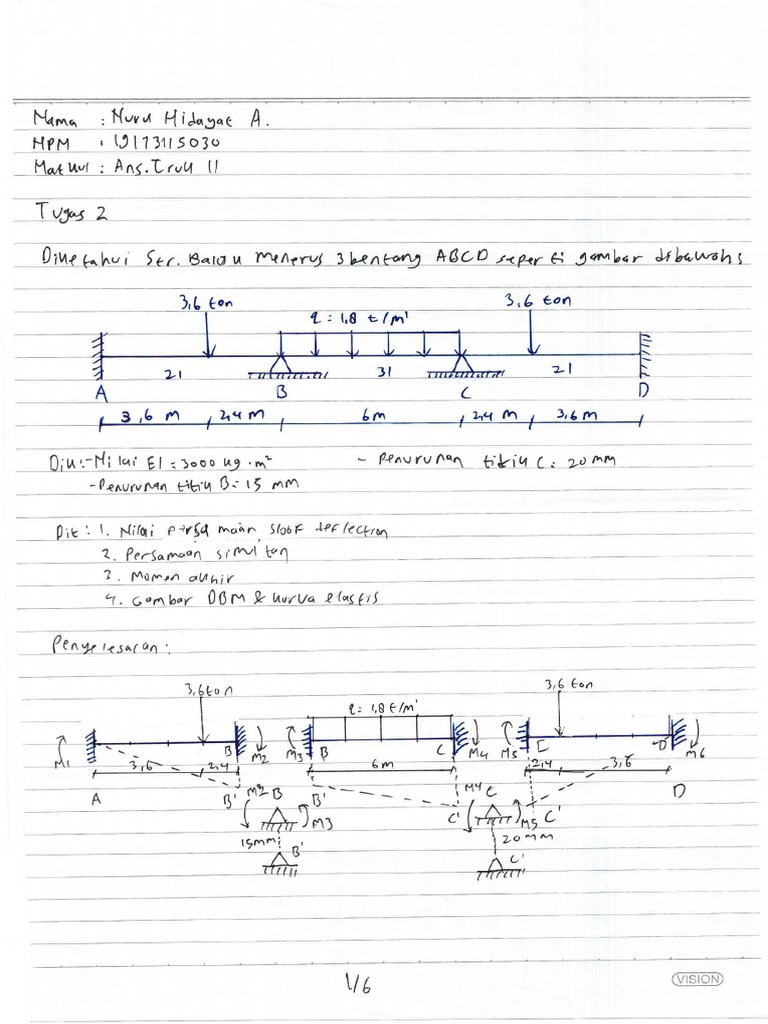 Nama : Nurul Hidayat A.
NPM : 173115030
Matkul : Ans. Truk II
Tugas 2
Diketahui Str. Balok Menerus 3 bentang ABCD seperti gambar dibawah
3,6 ton 3,6 ton
q = 1,8 t/m'
2I 3I 2I
A B C D
3,6 m 2,4 m 6m 2,4 m 3,6 m
Dik :- Nilai EI = 3000 kg.m² - Penurunan titik C = 20 mm
- Penurunan titik B = 15 mm
Dit : 1. Nilai persamaan slope deflection
2. Persamaan simultan
3. Momen akhir
4. Gambar DBM & kurva elastis
Penyelesaian :
3,6 ton q = 1,8 t/m' 3,6 ton
M1 B M2 M3 B C M4 M5 C D M6
3,6 2,4 6m 2,4 3,6
A B' M2 B B' C' M4 C M5 C' D
M3
15mm B' 20 mm C'
1/6
VISION